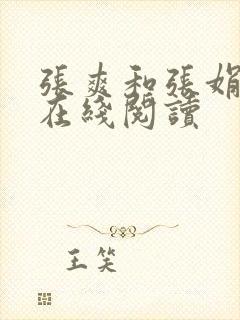 張爽和張娟
在綫閱讀
王笑